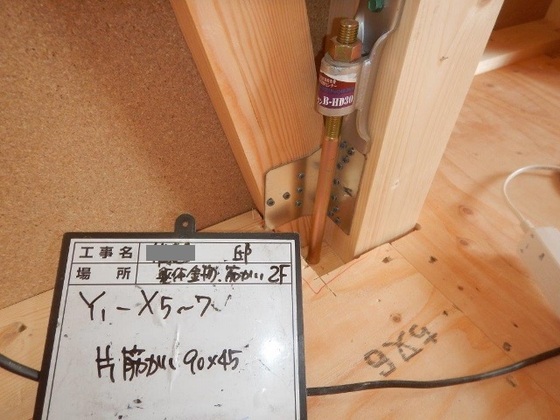 B-HD30
工事名 邸
場所 躯体金物・筋かい 2F
Y1-X5~7
片筋かい 90×45